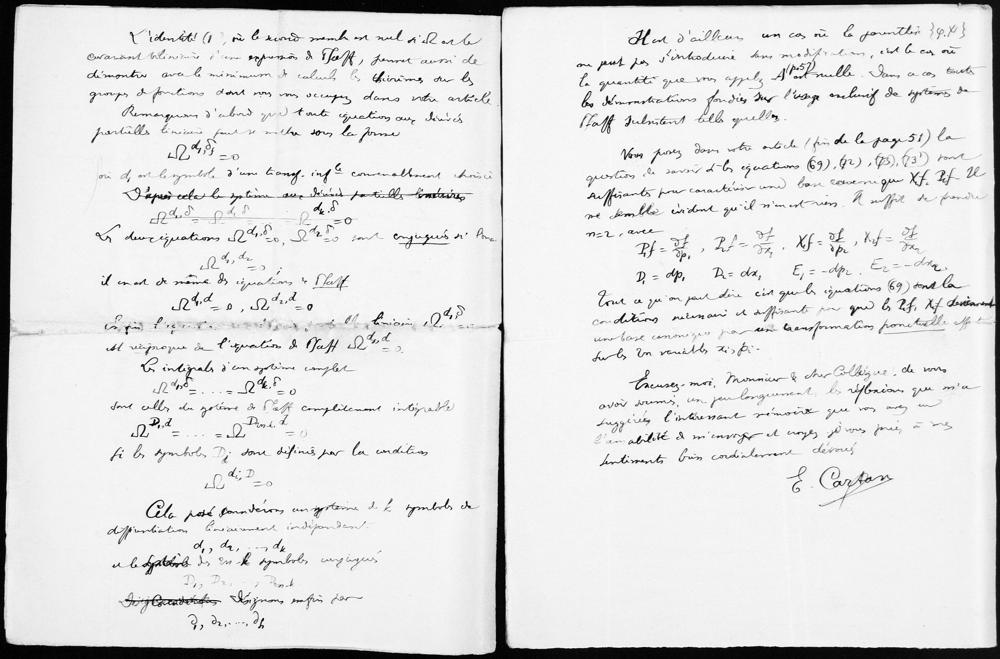 L'identité (1), où le second membre est nul si Ω est le
covariant bilinéaire d'une expression de Pfaff, permet aussi de
démontrer avec le minimum de calculs les théorèmes sur les
groupes de fonctions dont vous vous occupez dans votre article.
Remarquons d'abord que toute équation aux dérivées
partielles linéaire peut se mettre sous la forme
Ω^{d₁,δ} = 0
où d₁ est le symbole d'une transf. inf^{le} convenablement choisie
D'après cela le système aux dérivées partielles linéaires
Ω^{d₁,δ} = Ω^{d₂,δ} ... Ω^{dₖ,δ} = 0
Les deux équations Ω^{d₁,δ} = 0, Ω^{d₂,δ} = 0 sont conjuguées si
Ω^{d₁,d₂} = 0 ;
il en est de même des équations de Pfaff
Ω^{d₁,d} = 0, Ω^{d₂,d} = 0
linéaire Ω^{d₁,δ} = 0
est réciproque de l'équation de Pfaff Ω^{d₁,d} = 0.
Les intégrales d'un système complet
Ω^{d₁,δ} = .... = Ω^{dₖ,δ} = 0
sont celles du système de Pfaff complètement intégrable
Ω^{D₁,d} = .... = Ω^{D₂ₙ₋ₖ,d} = 0
si les symboles Dⱼ sont définis par la condition
Ω^{dᵢ,D} = 0
Cela posé considérons un système de k symboles de
différentiation linéairement indépendants
d₁, d₂, ..., dₖ
et le système des 2n-k symboles conjugués
D₁, D₂, ..., D₂ₙ₋ₖ
Désignons enfin par
∂₁, ∂₂, ..., ∂ₕ
Il est d'ailleurs un cas où la parenthèse {φ,X}
ne peut pas s'introduire sans modification, c'est le cas où
la quantité que vous appelez A (p.57) est nulle. Dans ce cas toutes
les démonstrations fondées sur l'usage exclusif de systèmes de
Pfaff subsistent telles quelles.
Vous posez dans votre article (fin de la page 51) la
question de savoir si les équations (69), (72), (73), (73') sont
suffisantes pour caractériser une base canonique Xf, Pf. Il
me semble évident qu'il n'en est rien. Il suffit de prendre
n=2, avec
P₁f = ∂f/∂p₁, P₂f = ∂f/∂x₁, X₁f = ∂f/∂p₂, X₂f = ∂f/∂x₂
D₁ = dp₁ D₂ = dx₁ E₁ = -dp₂. E₂ = -dx₂.
Tout ce qu'on peut dire c'est que les équations (69) sont la
conditions nécessaire et suffisante pour que les Pᵢf, Xᵢf deviennent
une base canonique par une transformation ponctuelle effectuée
sur les 2n variables xᵢ, pᵢ.
Excusez-moi, Monsieur & cher Collègue, de vous
avoir soumis, un peu longuement, les réflexions que m'a
suggérées l'intéressant mémoire que vous avez eu
l'amabilité de m'envoyer et croyez, je vous prie, à mes
sentiments bien cordialement dévoués
E. Cartan